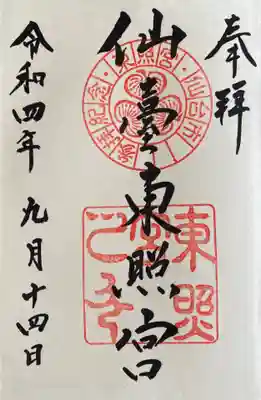 奉拝
仙臺東照宮
令和四年 九月十四日
東照宮